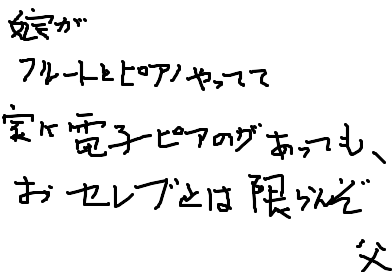 娘が
フルートとピアノやってて
家に電子ピアのがあっても、
おセレブとは限らんぞ
父